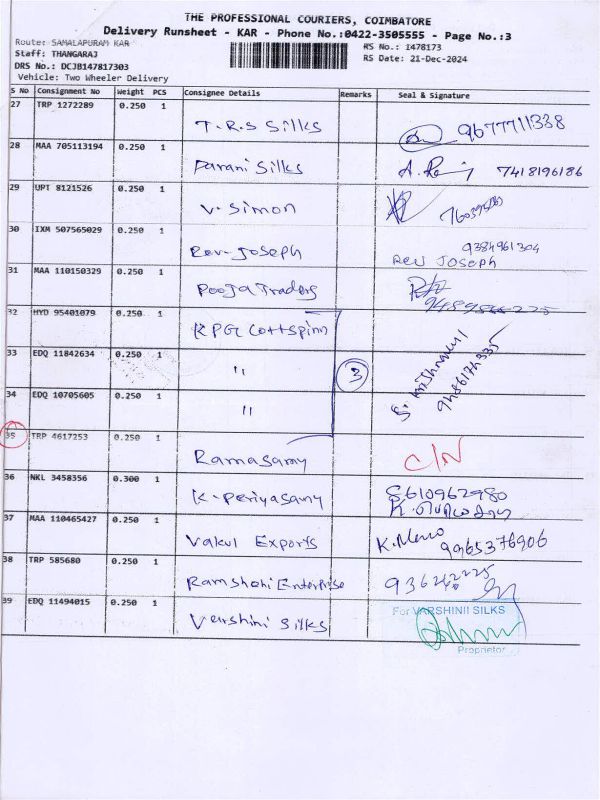 THE PROFESSIONAL COURIERS, COIMBATORE
Delivery Runsheet - KAR - Phone No.:0422-3505555 - Page No.:3
Route: SAMALAPURAM KAR
RS No.: 1478173
Staff: THANGARAJ
RS Date: 21-Dec-2024
DRS No.: DCJB147817303
Vehicle: Two Wheeler Delivery
S No Consignment No Weight PCS Consignee Details Remarks Seal & Signature
27 TRP 1272289 0.250 1
T.R.S Silks 9677711338
28 MAA 705113194 0.250 1
Parani Silks 7418196186
29 UPT 8121526 0.250 1
V. Simon
30 IXM 507565029 0.250 1
Rev. Joseph 9384961304
Rev Joseph
31 MAA 110150329 0.250 1
Pooja Traders
32 HYD 95401079 0.250 1
KPG Cottspinn
33 EDQ 11842634 0.250 1
" 3
34 EDQ 10705605 0.250 1
"
35 TRP 4617253 0.250 1
Ramasamy C/N
36 NKL 3458356 0.300 1
K. Periyasamy 8610962980
37 MAA 110465427 0.250 1
Vakul Exports 9965376906
38 TRP 585680 0.250 1
Ramshahi Enterprise
39 EDQ 11494015 0.250 1
Varshini Silks
For VARSHINII SILKS
Proprietor